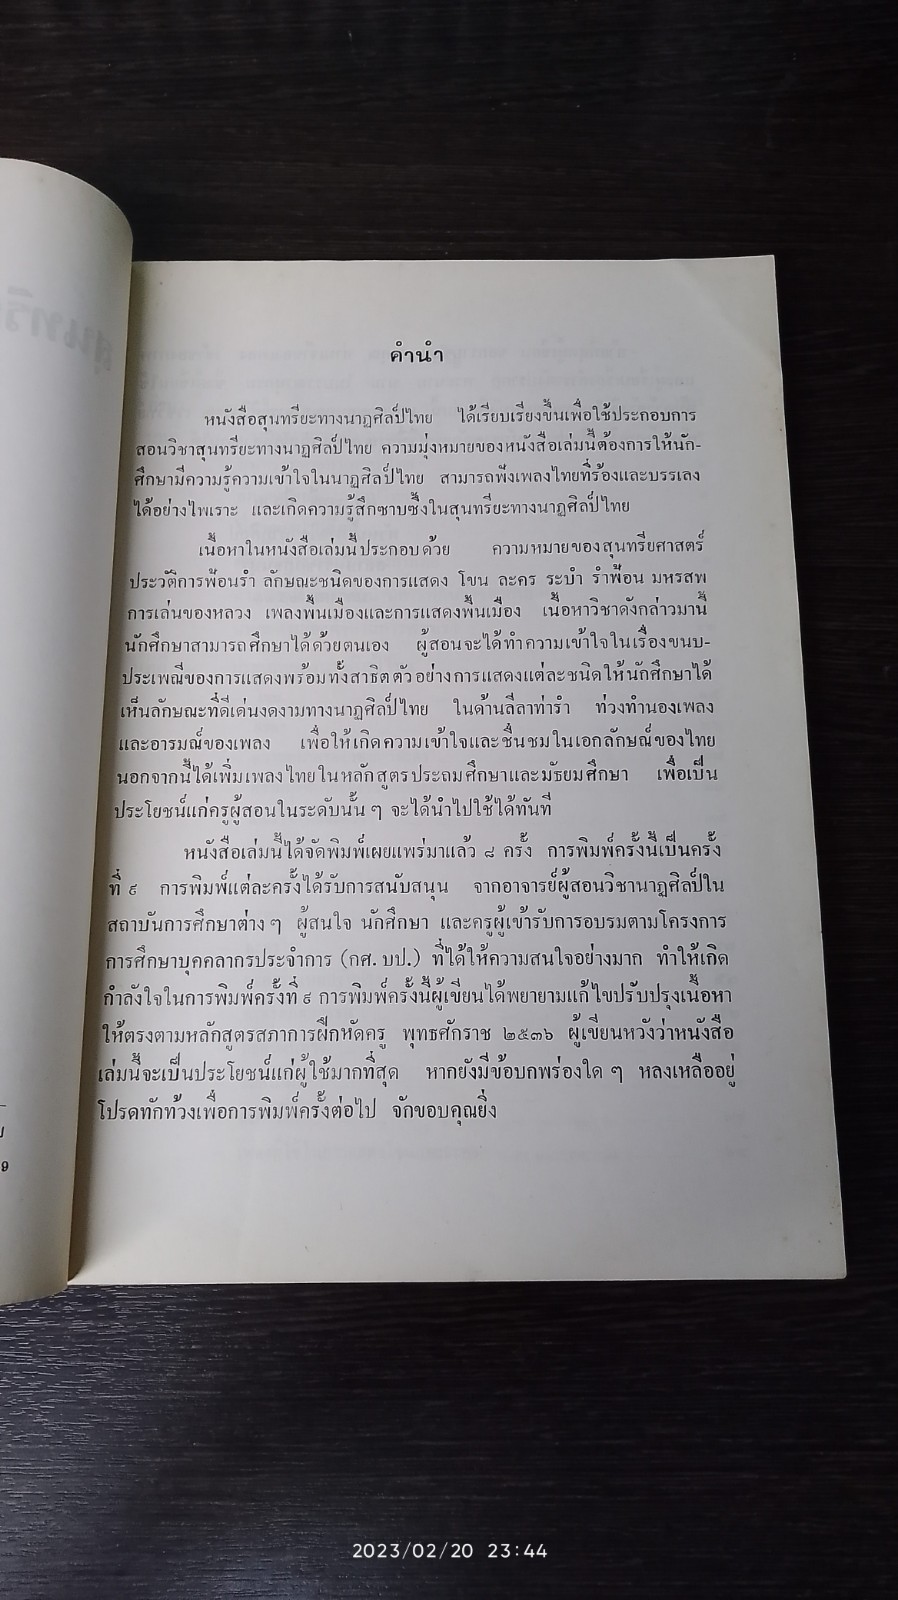 คำนำ
หนังสือสุนทรียะทางนาฏศิลป์ไทย ได้เรียบเรียงขึ้นเพื่อใช้ประกอบการ
สอนวิชาสุนทรียะทางนาฏศิลป์ไทย ความมุ่งหมายของหนังสือเล่มนี้ต้องการให้นัก-
ศึกษามีความรู้ความเข้าใจในนาฏศิลป์ไทย สามารถฟังเพลงไทยที่ร้องและบรรเลง
ได้อย่างไพเราะ และเกิดความรู้สึกซาบซึ้งในสุนทรียะทางนาฏศิลป์ไทย
เนื้อหาในหนังสือเล่มนี้ประกอบด้วย ความหมายของสุนทรียศาสตร์
ประวัติการฟ้อนรำ ลักษณะชนิดของการแสดง โขน ละคร ระบำ รำฟ้อน มหรสพ
การเล่นของหลวง เพลงพื้นเมืองและการแสดงพื้นเมือง เนื้อหาวิชาดังกล่าวมานี้
นักศึกษาสามารถศึกษาได้ด้วยตนเอง ผู้สอนจะได้ทำความเข้าใจในเรื่องขนบ-
ประเพณีของการแสดงพร้อมทั้งสาธิตตัวอย่างการแสดงแต่ละชนิดให้นักศึกษาได้
เห็นลักษณะที่ดีเด่นงดงามทางนาฏศิลป์ไทย ในด้านลีลาท่ารำ ท่วงทำนองเพลง
และอารมณ์ของเพลง เพื่อให้เกิดความเข้าใจและชื่นชมในเอกลักษณ์ของไทย
นอกจากนี้ได้เพิ่มเพลงไทยในหลักสูตรประถมศึกษาและมัธยมศึกษา เพื่อเป็น
ประโยชน์แก่ครูผู้สอนในระดับนั้น ๆ จะได้นำไปใช้ได้ทันที
หนังสือเล่มนี้ได้จัดพิมพ์เผยแพร่มาแล้ว ๘ ครั้ง การพิมพ์ครั้งนี้เป็นครั้ง
ที่ ๙ การพิมพ์แต่ละครั้งได้รับการสนับสนุน จากอาจารย์ผู้สอนวิชานาฏศิลป์ใน
สถาบันการศึกษาต่าง ๆ ผู้สนใจ นักศึกษา และครูผู้เข้ารับการอบรมตามโครงการ
การศึกษาบุคคลากรประจำการ (กศ. บป.) ที่ได้ให้ความสนใจอย่างมาก ทำให้เกิด
กำลังใจในการพิมพ์ครั้งที่ ๙ การพิมพ์ครั้งนี้ผู้เขียนได้พยายามแก้ไขปรับปรุงเนื้อหา
ให้ตรงตามหลักสูตรสภาการฝึกหัดครู พุทธศักราช ๒๕๓๖ ผู้เขียนหวังว่าหนังสือ
เล่มนี้จะเป็นประโยชน์แก่ผู้ใช้มากที่สุด หากยังมีข้อบกพร่องใด ๆ หลงเหลืออยู่
โปรดทักท้วงเพื่อการพิมพ์ครั้งต่อไป จักขอบคุณยิ่ง
2023/02/20 23:44